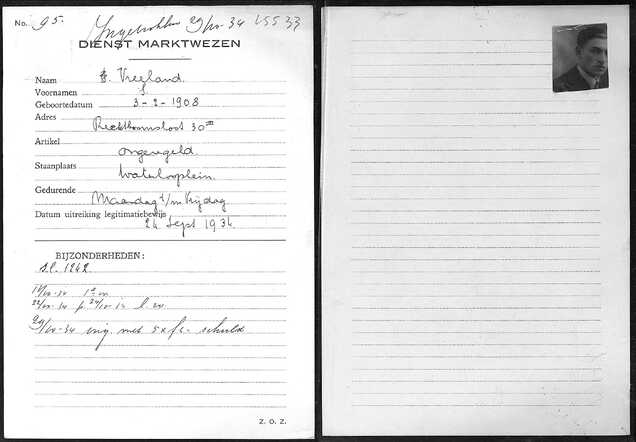 No. 95. Ingetrokken 29/10-34 L5533
DIENST MARKTWEZEN
Naam S. Vreeland.
Voornamen S.
Geboortedatum 3-2-1908
Adres
Rechtboomsloot 30 III
Artikel
ongeregeld.
Staanplaats
Waterlooplein.
Gedurende
Maandag t/m Vrijdag
Datum uitreiking legitimatiebewijs
24 Sept 1934.
BIJZONDERHEDEN:
s.l. 1242.
1e m
29/10-34 ing. met 5 x f - schuld
Z. O. Z.